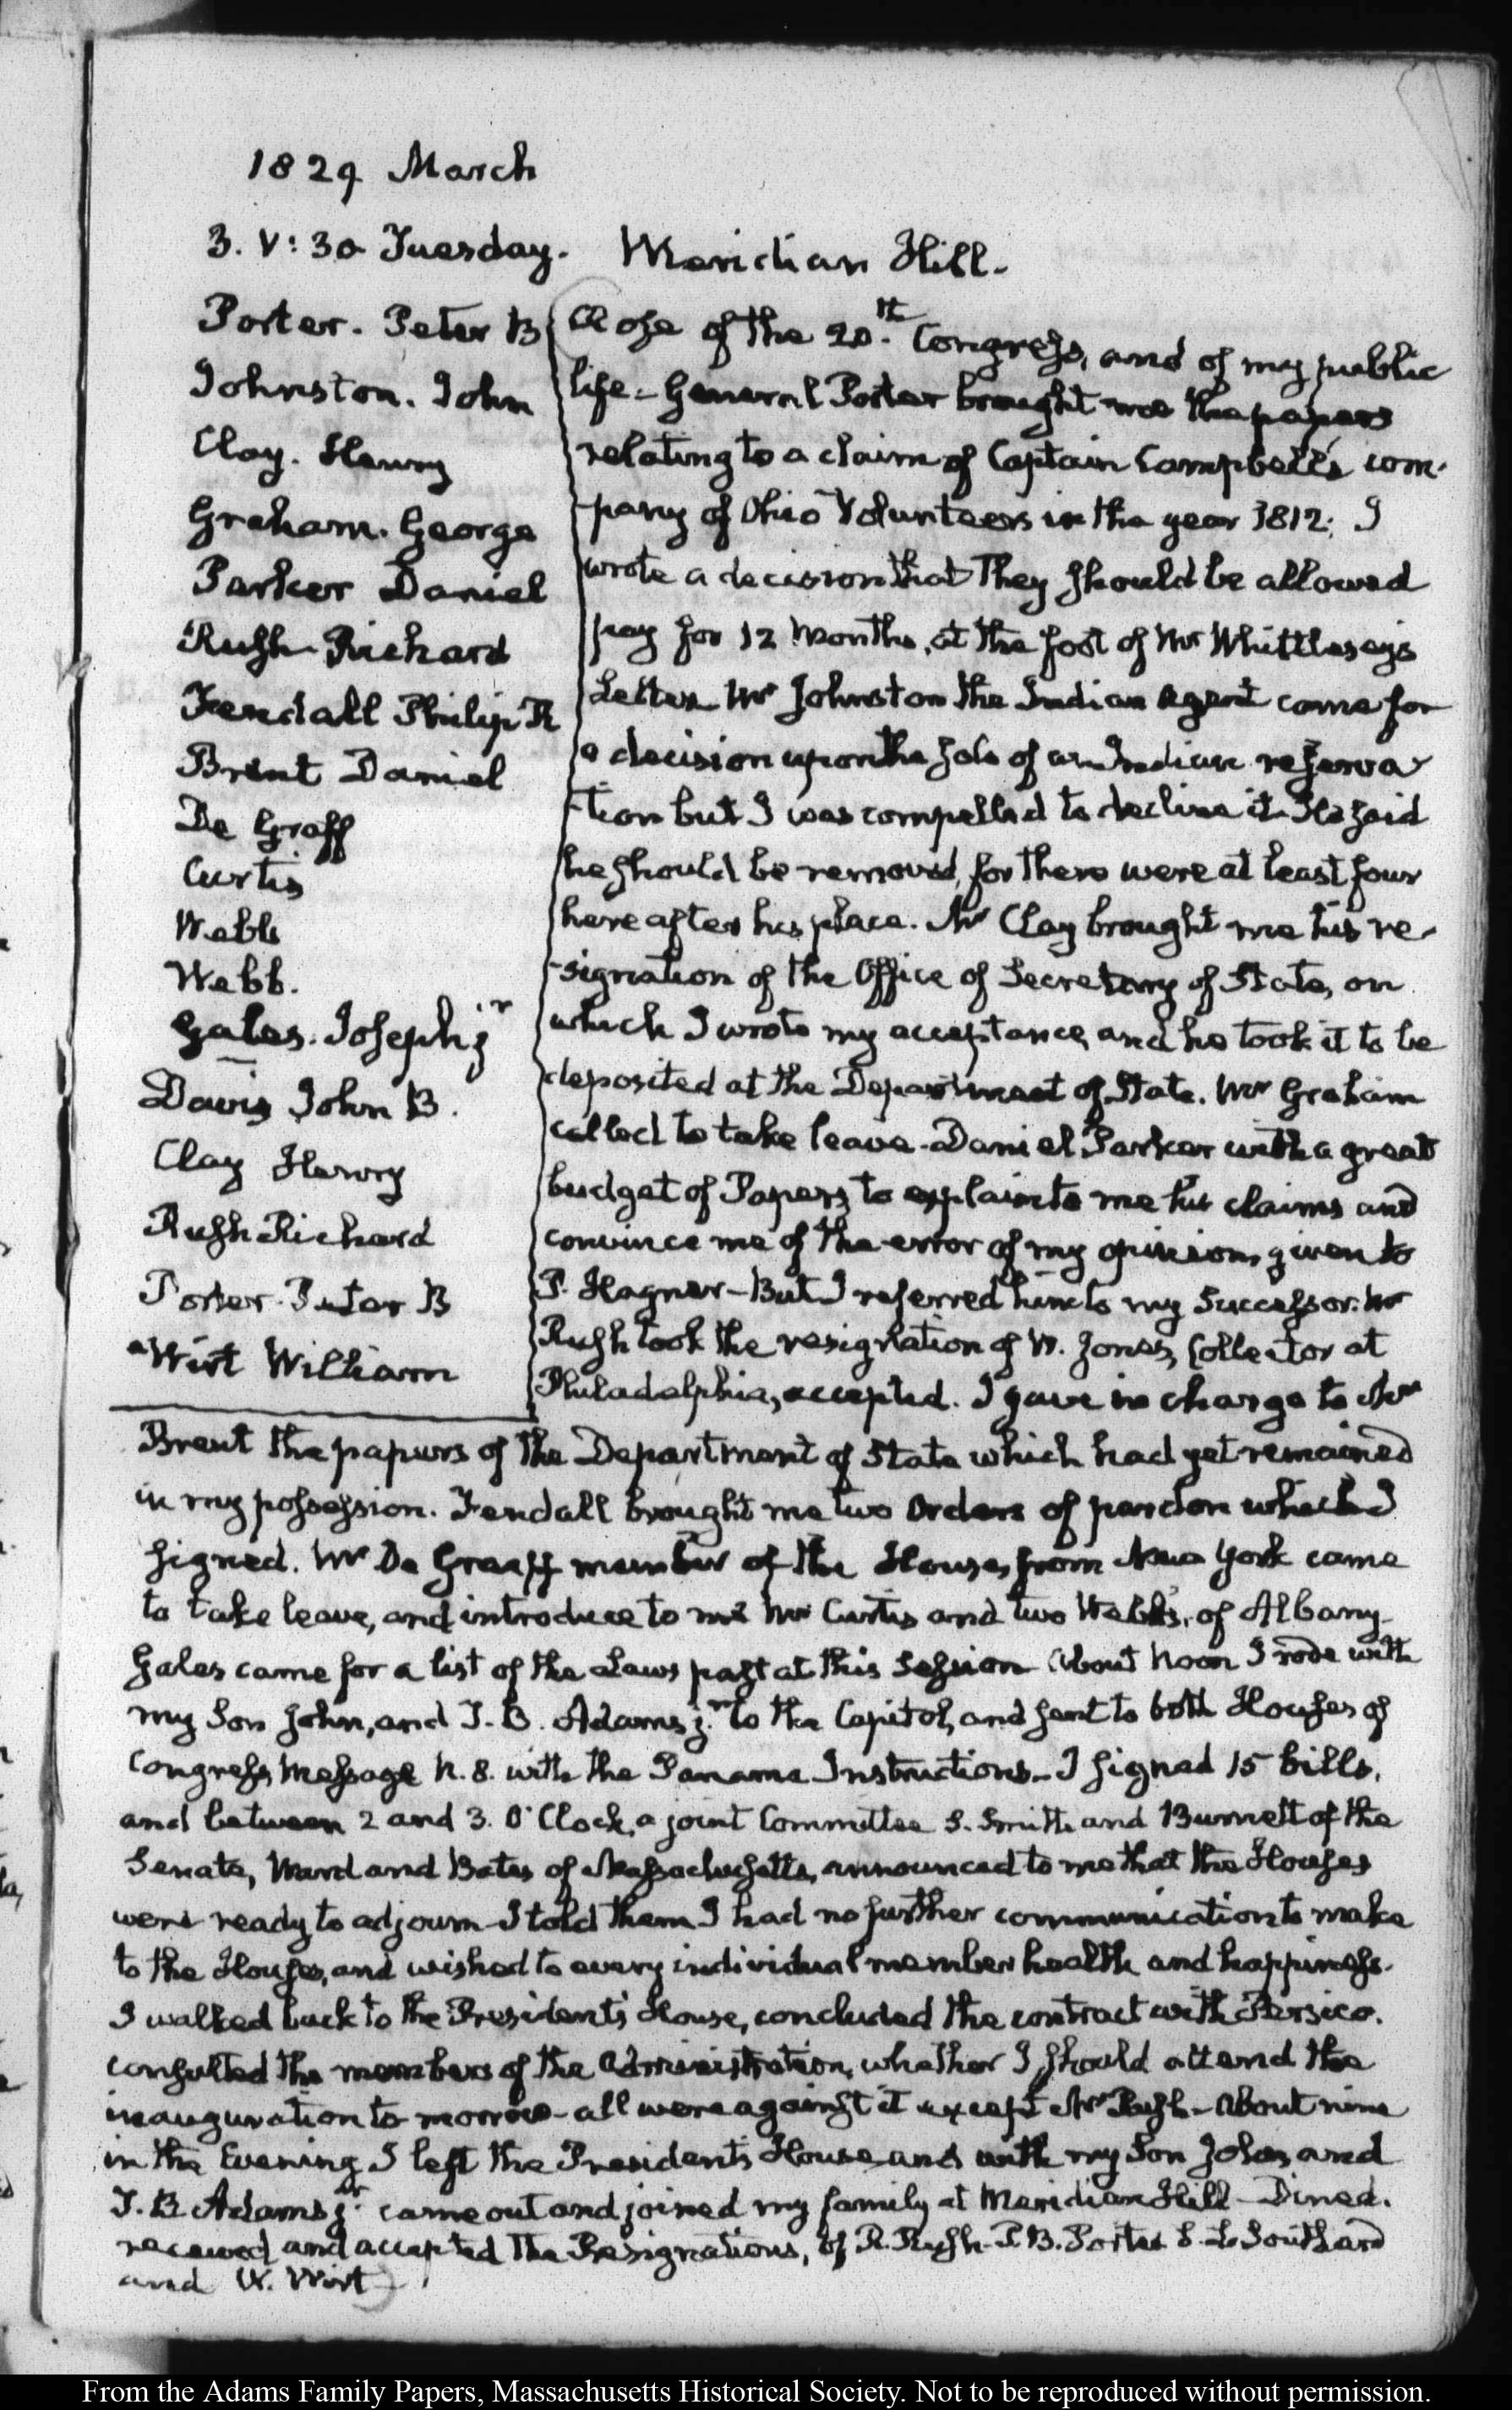 1829 March
3. V: 30 Tuesday. Meridian Hill.
Porter. Peter B
Johnston. John
Clay. Henry
Graham. George
Parker Daniel
Rush Richard
Fendall Philip R
Brent Daniel
De Graff
Curtis
Webb
Webb.
Gales. Joseph jr
Davis John B.
Clay Henry
Rush Richard
Porter. Peter B
Wirt William
Close of the 20.th Congress, and of my public
life - General Porter brought me the papers
relating to a claim of Captain Campbell's com-
-pany of Ohio Volunteers in the year 1812; I
wrote a decision that they should be allowed
pay for 12 Months, at the foot of Mr Whittlesey's
Letter. Mr Johnston the Indian Agent came for
a decision upon the sale of an Indian reserva
-tion but I was compelled to decline it. He said
he should be removed, for there were at least four
here after his place. Mr Clay brought me his re-
-signation of the Office of Secretary of State, on
which I wrote my acceptance, and he took it to be
deposited at the Department of State. Mr Graham
called to take leave - Daniel Parker with a great
budget of Papers, to explain to me his claims and
convince me of the error of my opinion, given to
P. Hagner - But I referred him to my Successor. Mr
Rush took the resignation of W. Jones, Collector at
Philadelphia, accepted. I gave in charge to Mr
Brent the papers of the Department of State which had yet remained
in my possession. Fendall brought me two Orders of pardon which I
signed. Mr De Graaff member of the House, from New York came
to take leave, and introduce to me Mr Curtis and two Webb's, of Albany -
Gales came for a list of the Laws past at this Session About Noon I rode with
my Son John, and T. B. Adams jr. to the Capitol, and sent to both Houses of
Congress Message N. 8. with the Panama Instructions - I signed 15 bills,
and between 2 and 3. O'Clock, a joint Committee S. Smith and Burnett of the
Senate, Ward and Bates of Massachusetts, announced to me that the Houses
were ready to adjourn - I told them I had no further communication to make
to the Houses, and wished to every individual member health and happiness.
I walked back to the President's House, concluded the contract with Persico.
consulted the members of the Administration, whether I should attend the
inauguration to-morrow - all were against it except Mr Rush - About nine
in the Evening I left the President's House and with my Son John, and
T. B Adams jr. came out and joined my family at Meridian Hill - Dined.
received and accepted the Resignations, of R. Rush - P. B. Porter S. L. Southard
and W. Wirt
From the Adams Family Papers, Massachusetts Historical Society. Not to be reproduced without permission.